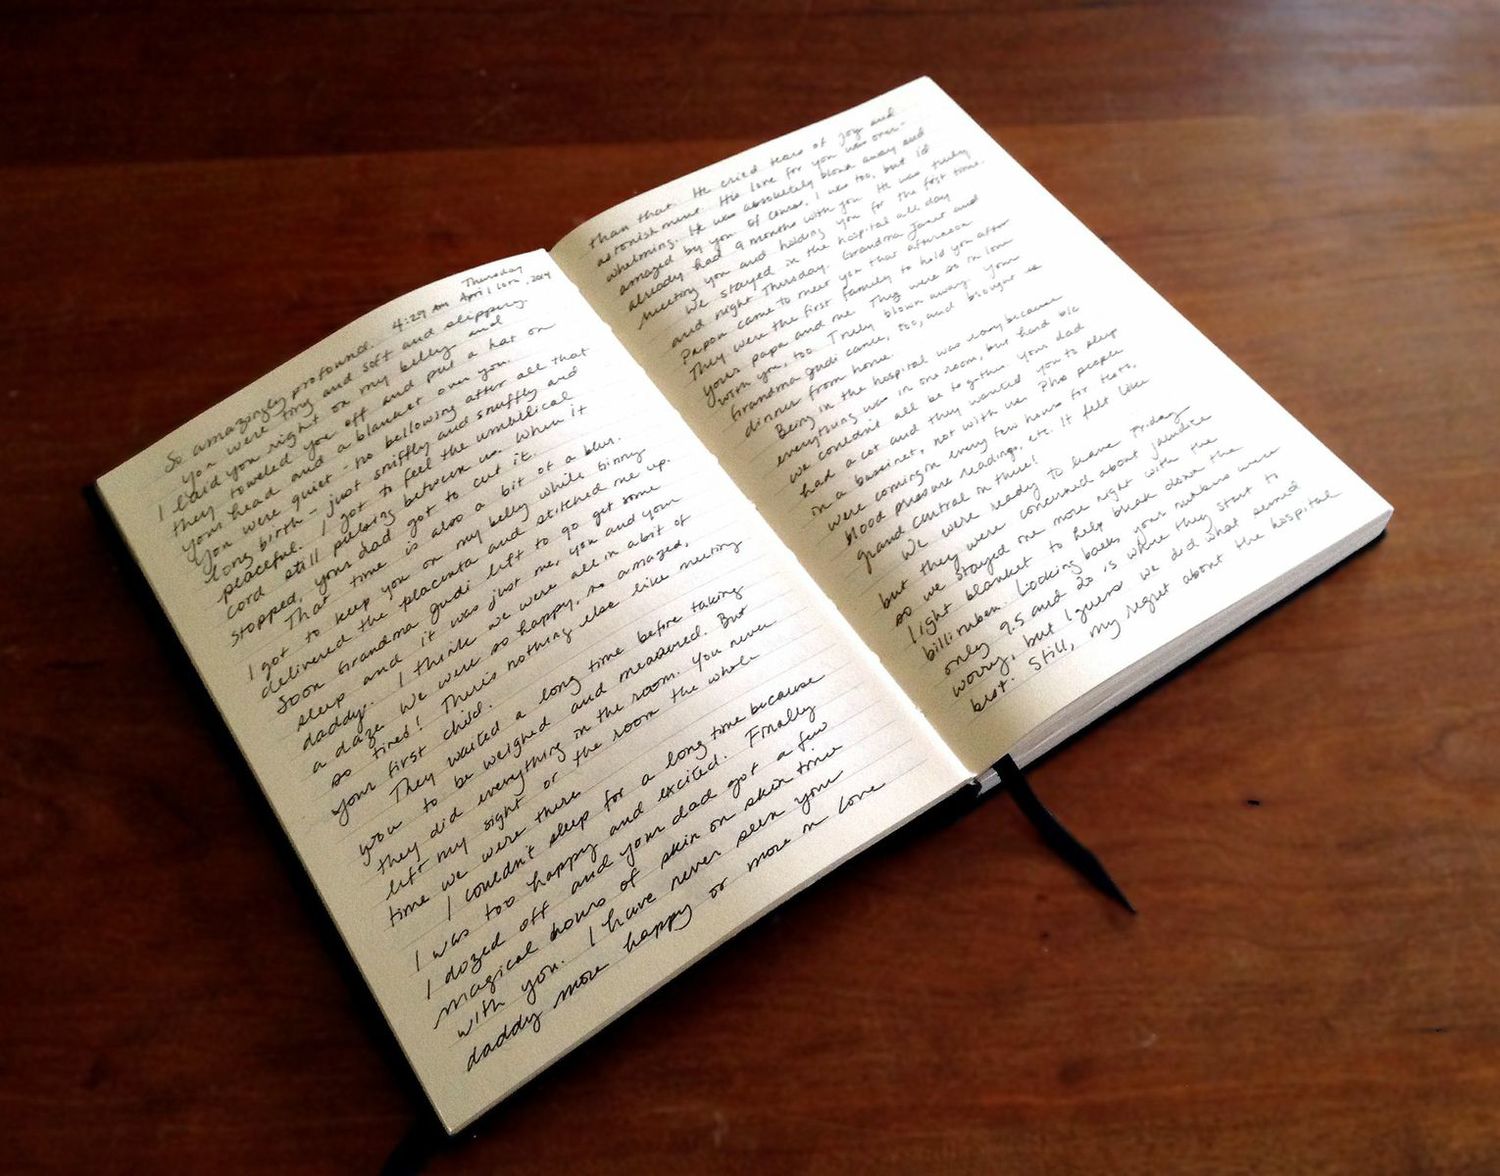 Thursday
4:29 AM April 10th, 2014
So amazingly profound.
you were tiny and soft and slippery.
I laid you right on my belly and
they toweled you off and put a hat on
your head and a blanket over you.
You were quiet - no bellowing after all that
long birth - just sniffly and snuffly and
peaceful. I got to feel the umbilical
cord still pulsing between us. When it
stopped, your dad got to cut it.
That time is also a bit of a blur.
I got to keep you on my belly while
delivered the placenta and stitched me up.
Soon Grandma Judi left to go get some
sleep and it was just me, you and your
daddy. I think we were all in a bit of
a daze. We were so happy, so amazed,
so tired! There's nothing else like meeting
your first child.
They waited a long time before taking
you to be weighed and measured. But
they did everything in the room. You never
left my sight or the room the whole
time we were there.
I couldn't sleep for a long time because
I was too happy and excited. Finally
I dozed off and your dad got a few
magical hours of skin on skin time
with you. I have never seen your
daddy more happy or more in love
than that. He cried tears of joy and
astonishment. His love for you was over-
whelming. He was absolutely blown away and
amazed by you. Of course, I was too, but I'd
already had 9 months with you. He was truly
meeting you and holding you for the first time.
We stayed in the hospital all day
and night Thursday. Grandma Janet and
Papon came to meet you that afternoon.
They were the first family to hold you after
your papa and me. They were so in love
with you, too. Truly blown away. Your
Grandma Judi came, too, and brought us
dinner from home.
Being in the hospital was easy because
everything was in one room, but hard b/c
we couldn't all be together. Your dad
had a cot and they wanted you to sleep
in a bassinet, not with us. Plus people
were coming in every few hours for tests,
blood pressure readings, etc. It felt like
grand central in there!
We were ready to leave Friday
but they were concerned about jaundice
so we stayed one more night with the
light blanket to help break down the
billiruben. Looking back, your numbers were
only 9.5 and 20 is where they start to
worry, but I guess we did what seemed
best. Still, my regret about the hospital